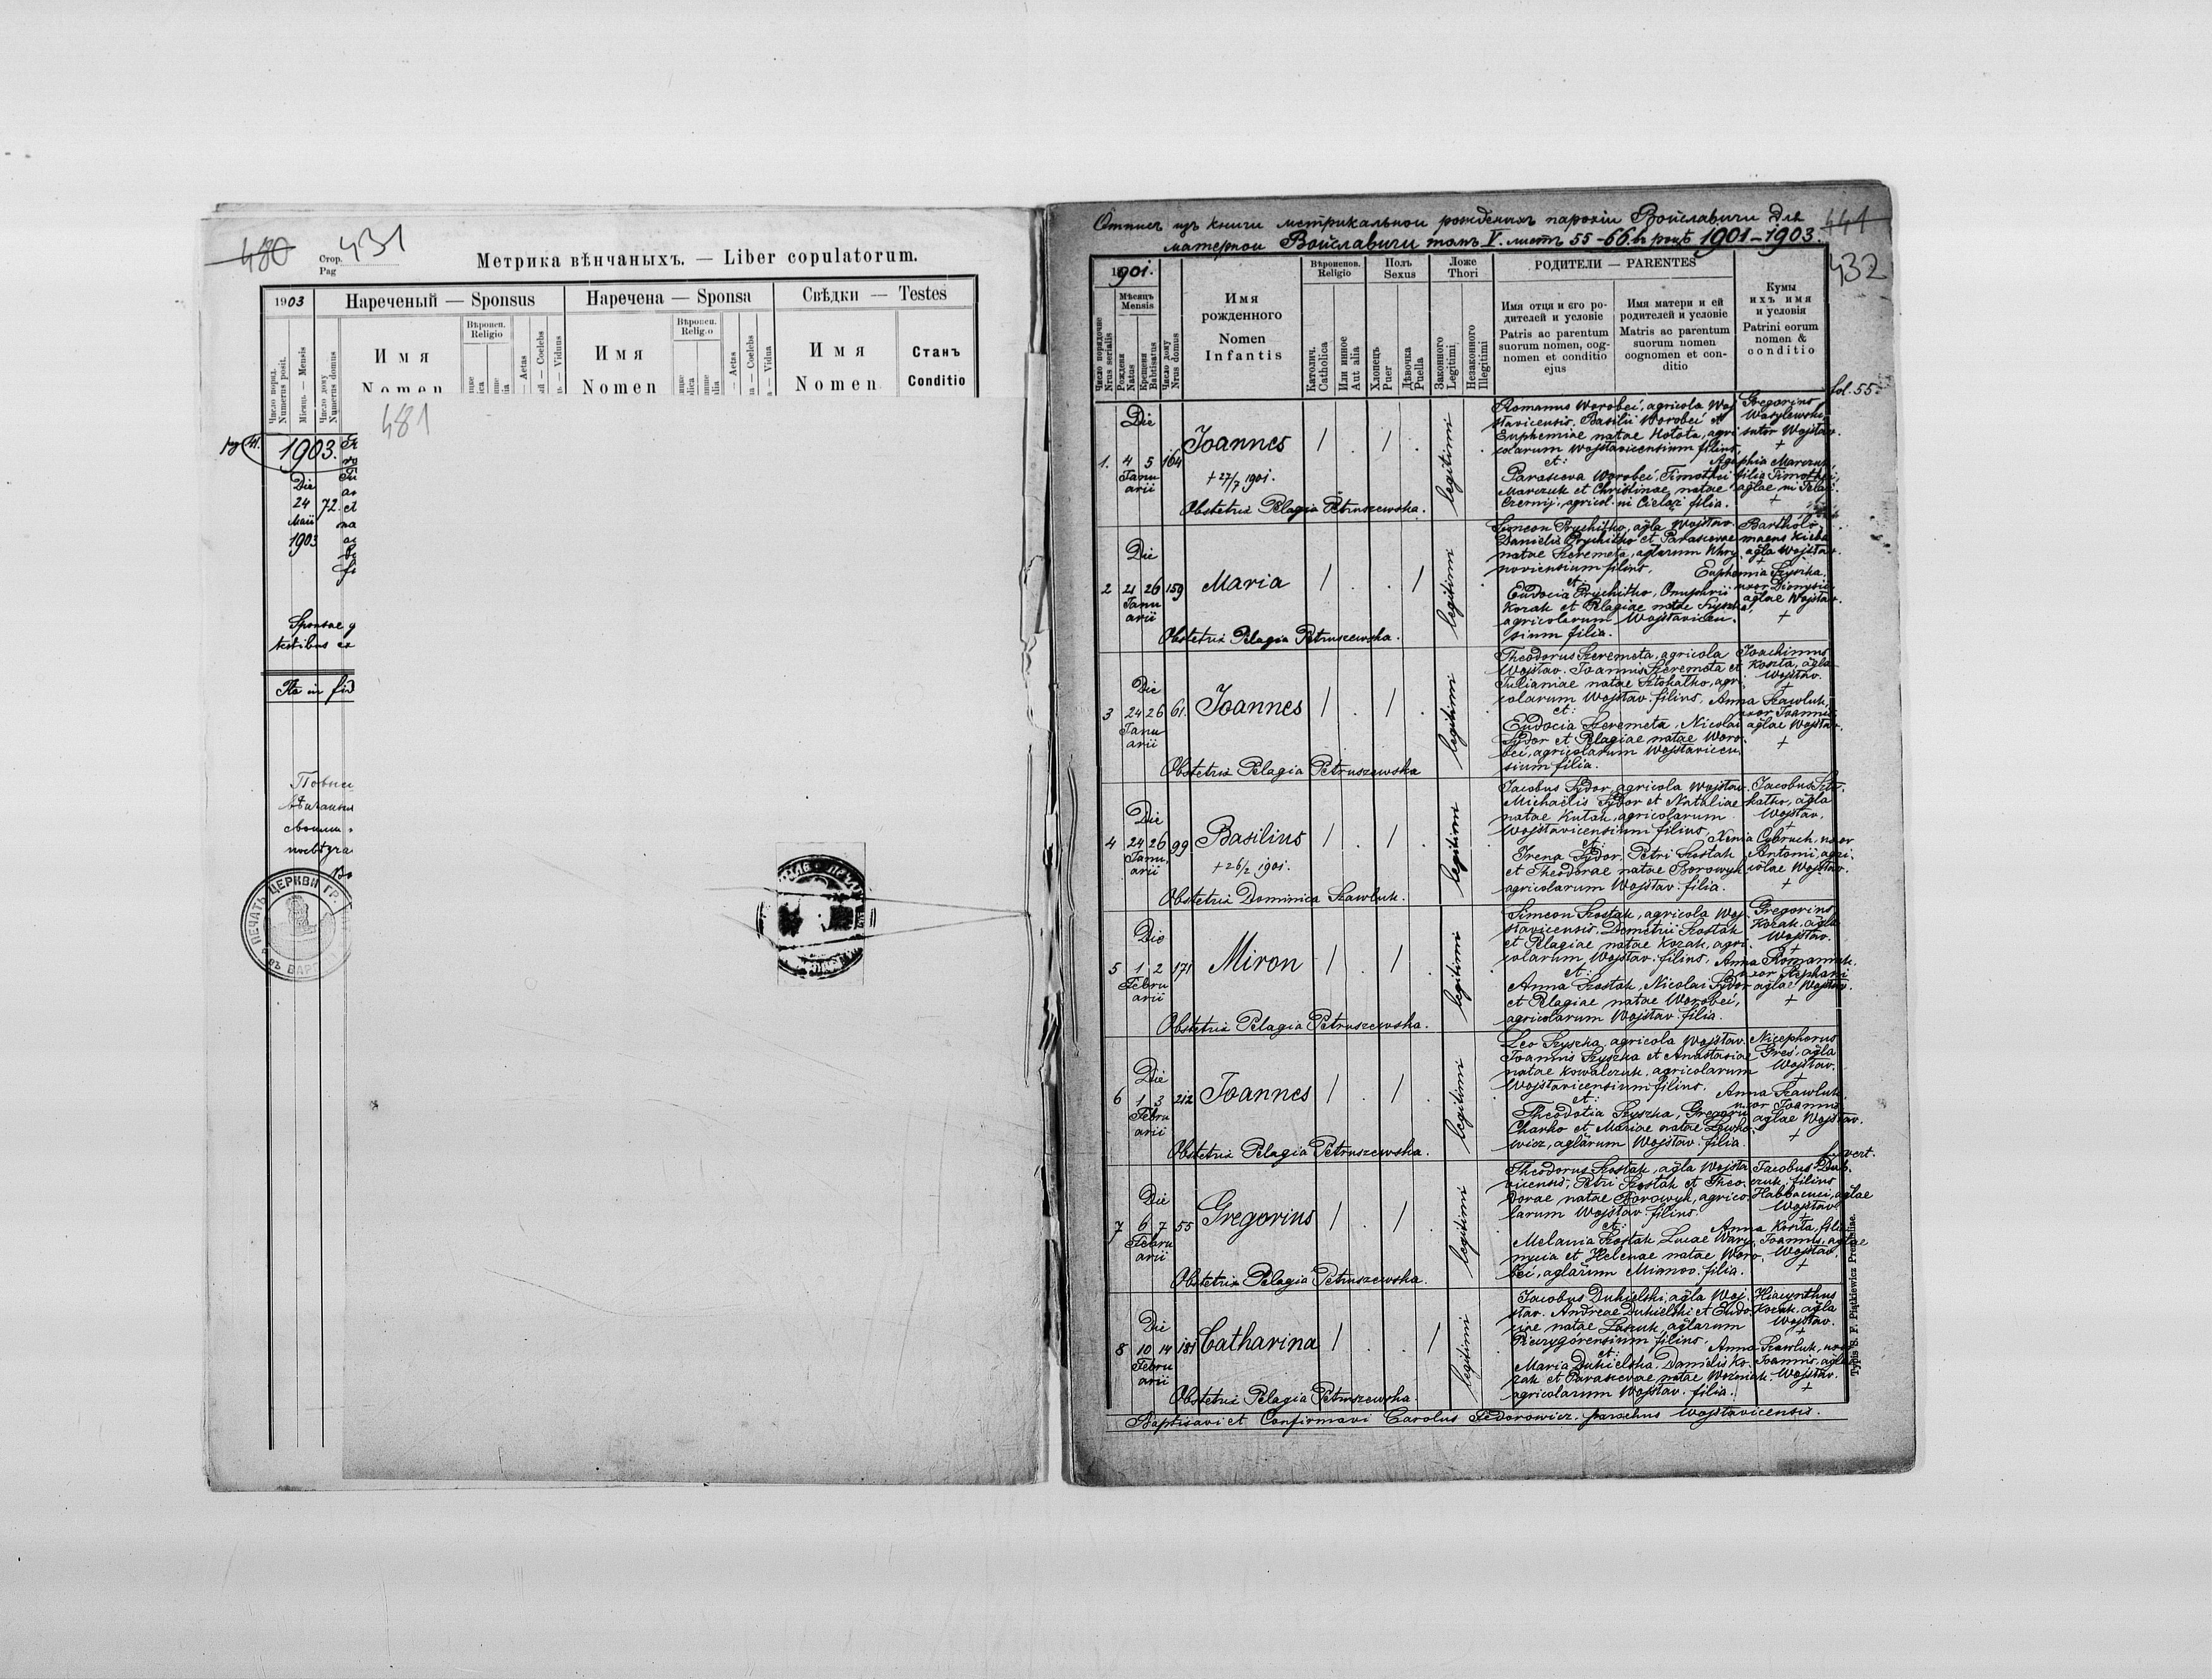 480
Стор.
Pag
431
Метрика вѣнчаныхъ. — Liber copulatorum.
1903
Нареченый — Sponsus
Наречена — Sponsa
Свѣдки — Testes
Число поряд.
Numerus posit.
Мѣсяць — Mensis
Число дому
Numerus domus
Имя
Nomen
Вѣроисп.
Religio
Имя
Nomen
Вѣроисп.
Имя
Nomen
Станъ
Conditio
481
1903.
Die
24 72.
Maii
1903
Sponsae
testibus
Ita in
ПЕЧАТЬ ЦЕРКВИ ГР.
Отписъ изъ книги метрикальнои рожденыхъ парохіи Войславичи для
матернои Войславичи томъ V. листъ 55-66. въ роцѣ 1901-1903.
441
432
1901.
Мѣсяць
Mensis
Число порядочне
Nrus serialis
Рожденя
Natus
Крещеня
Babtisatus
Число дому
Nrus domus
Имя
рожденного
Nomen
Infantis
Вѣроисповѣд.
Religio
Католич.
Catholica
Или инное
Aut alia
Полъ
Sexus
Хлопець
Puer
Дѣвочка
Puella
Ложе
Thori
Законного
Legitimi
Незаконного
Illegitimi
РОДИТЕЛИ — PARENTES
Имя отця и его ро-
дителей и условіе
Patris ac parentum
suorum nomen, cog-
nomen et conditio
ejus
Имя матери и ей
родителей и условіе
Matris ac parentum
suorum nomen
cognomen et con-
ditio
Кумы
ихъ имя
и условія
Patrini eorum
nomen &
conditio
fol. 55.
Die
1. 4 5 164 Joannes / . / . legitimi
Januarii
+ 27/7 1901.
Obstetrix Pelagia Petruszewska.
Romanus Worobeć, agricola Woj
stavicensis, Basilii Worobeć et
Euphemiae natae Kotota, agri
colarum Wojstavicensium filius,
et:
Parasceva Worobeć, Timothei
Marczuk et Christinae natae
Czernij, agricol. in Cieląż filia.
Gregorius
Wasylewski
sutor Wojstav.
+
Agaphia Marczuk,
filia Timothei,
Die
2 21 26 159 Maria / . . / legitimi
Januarii
Obstetrix Pelagia Petruszewska.
Simeon Prychitko, agla Wojstav.
Danielis Prychitko et Parascevae
natae Szeremeta, aglarum
filius,
et:
Eudocia Prychitko, Onuphrii
Kozak et Pelagiae natae Szyszka,
agricolarum Wojstavicen
sium filia.
agla Wojstav.
Euphemia Szyszka
uxor Dionysii
aglae Wojstav.
+
Die
3 24 26 61. Joannes / . / . legitimi
Januarii
Obstetrix Pelagia Petruszewska
Theodorus Szeremeta, agricola
Wojstav. Joannis Szeremeta et
Julianiae natae Sztokatko, agri
colarum Wojstav. filius,
et:
Eudocia Szeremeta, Nicolai
Sydor et Pelagiae natae Woro
beć, agricolarum Wojstavicen
sium filia.
Joachimus
Koszta, agla
Wojstav.
+
Anna Szawluk,
uxor Joannis
aglae Wojstav.
+
Die
4 24 26 99 Basilius / . / . legitimi
Januarii
+ 26/2 1901.
Obstetrix Dominica Szawluk.
Jacobus Sydor, agricola Wojstav.
Michaëlis Sydor et Nataliae
natae Kutak, agricolarum
Wojstavicensium filius,
et:
Irena Sydor, Petri Szostak
et Theodorae natae Borowyk
agricolarum Wojstav. filia.
agla
Wojstav.
+
Xenia Cybruch, uxor
Antonii, agri
colae Wojstav.
+
Die
5 1 2 171 Miron / . / . legitimi
Februarii
Obstetrix Pelagia Petruszewska.
Simeon Szostak, agricola Woj
stavicensis, Demetrii Szostak
et Pelagiae natae Kozak, agri
colarum Wojstav. filius,
et:
Anna Szostak, Nicolai Sydor
et Pelagiae natae Worobeć,
agricolarum Wojstav. filia.
Gregorius
Kozak, agla
Wojstav.
+
Anna Romaniuk.
uxor Stephani
aglae Wojstav.
+
Die
6 1 3 212 Joannes / . / . legitimi
Februarii
Obstetrix Pelagia Petruszewska.
Leo Szyszka, agricola Wojstav.
Joannis Szyszka et Anastasiae
natae Kowalczuk, agricolarum
Wojstavicensium filius,
et:
Theodotia Szyszka, Gregorii
Charko et Mariae natae
wicz, aglarum Wojstav. filia.
Nicephorus
Greś, agla
Wojstav.
+
Anna Szawluk
uxor Joannis
aglae Wojstav.
+
vert.
Die
7 6 7 55 Gregorius / . / . legitimi
Februarii
Obstetrix Pelagia Petruszewska.
Theodorus Szostak, agla Wojsta
vicensis, Petri Szostak et Theo
dorae natae Borowyk, agrico
larum Wojstav. filius.
et:
Melania Szostak, Lucae
et Helenae natae Woro
beć, aglarum filia.
Jacobus
filius
Habbacuci, aglae
Wojstav.
+
Anna Koszta, filia
Joannis, aglae
Wojstav.
+
Die
8 10 14 181 Catharina / . . / legitimi
Februarii
Obstetrix Pelagia Petruszewska.
Jacobus Dukielski, agla Woj
stav. Andreae Dukielski et Eudo
ciae natae Laszuk, aglarum
filius,
et:
Maria Dukielska, Danielis Ko
zak et Parascevae natae Woźniak
agricolarum Wojstav. filia.
Hiacynthus
Kozak, agla
Wojstav.
+
Anna Szawluk, uxor
Joannis, aglae
Wojstav.
+
Baptisavi et Confirmavi Carolus Fedorowicz. parochus Wojstavicensis.
Typis S. F. Piątkiewicz Premisliae.